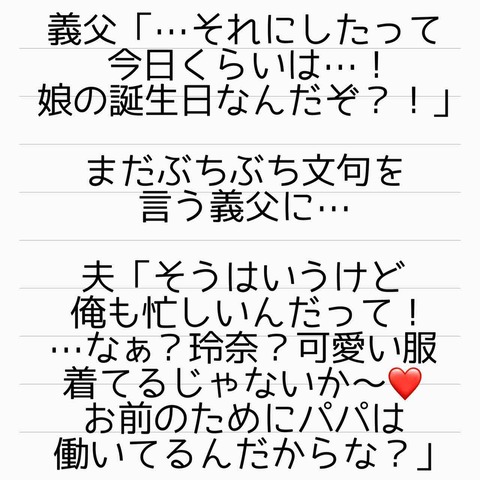 義父「…それにしたって
今日くらいは…！
娘の誕生日なんだぞ？！」
まだぶちぶち文句を
言う義父に…
夫「そうはいうけど
俺も忙しいんだって！
…なぁ？玲奈？可愛い服
着てるじゃないか〜❤️
お前のためにパパは
働いてるんだからな？」